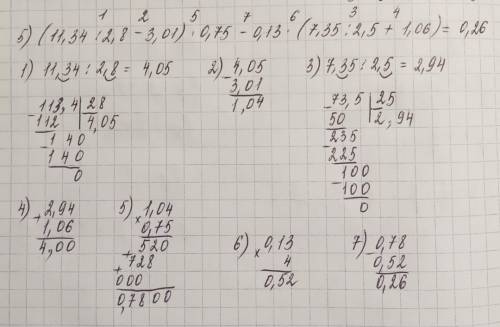 1 2 5 7 6 3 4
5) (11,34 : 2,8 - 3,01) · 0,75 - 0,13 · (7,35 : 2,5 + 1,06) = 0,26
1) 11,34 : 2,8 = 4,05
113,4 | 28
- 112 | 4,05
- 140
140
0
2) - 4,05
3,01
1,04
3) 7,35 : 2,5 = 2,94
- 73,5 | 25
50 | 2,94
- 235
225
- 100
100
0
4) + 2,94
1,06
4,00
5) × 1,04
0,75
520
+ 728
+ 000
0,7800
6) × 0,13
4
0,52
7) - 0,78
0,52
0,26